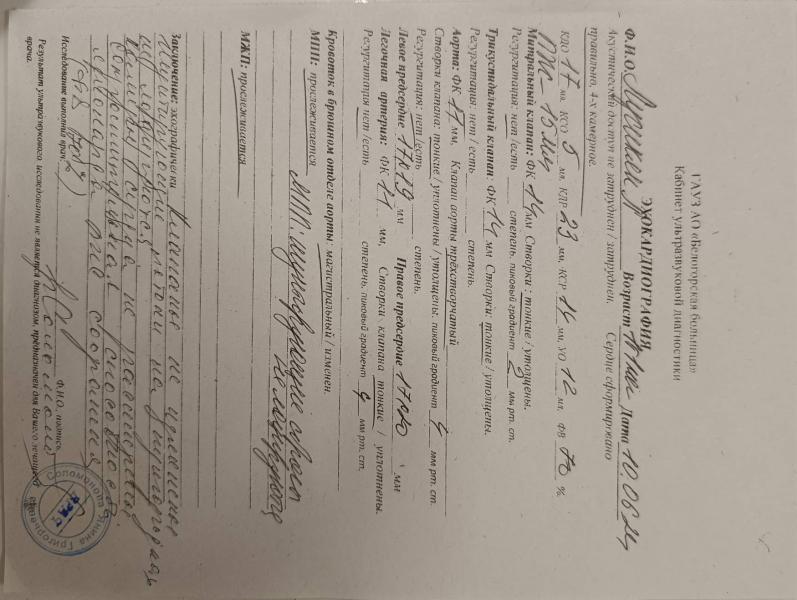 ГАУЗ АО «Белогорская больница»
Кабинет ультразвуковой диагностики
ЭХОКАРДИОГРАФИЯ
Ф.И.О. Возраст Дата 10.06.24
Акустический доступ не затруднен / затруднен. Сердце сформировано
правильно, 4-х камерное.
КДО 17 мл, КСО 5 мл, КДР 23 мм, КСР 14 мм, УО 12 мл, ФВ 70 %
ПЖ – 15 мм
Митральный клапан: ФК 14 мм Створки : тонкие / утолщены.
Регургитация: нет /есть степень, пиковый градиент 2 мм рт. ст.
Трикуспидальный клапан: ФК 14 мм Створки: тонкие / утолщены.
Регургитация: нет / есть степень.
Аорта: ФК мм, Клапан аорты трёхстворчатый
Створки клапана: тонкие / уплотнены /утолщены. пиковый градиент 4 мм рт. ст.
Регургитация: нет /есть степень.
Левое предсердие мм Правое предсердие мм
Легочная артерия: ФК 11 мм, Створки клапана тонкие / уплотнены.
Регургитация нет /есть степень, пиковый градиент мм рт. ст.
Кровоток в брюшном отделе аорты: магистральный / изменен.
МПП: прослеживается МПП: шунтирующий сброс
не лоцируется
МЖП: прослеживается
Заключение: эхографически Клапаны не изменены
Шунтирующие потоки на
не лоцируются
Камеры сердца не расширены.
Сократительная способность
миокарда сохранена
Исследование выполнил врач:
Ф.И.О., подпись
Результат ультразвукового исследования не является диагнозом, предназначен для Вашего лечащего
врача.
Соломонова Янина Григорьевна
ВРАЧ